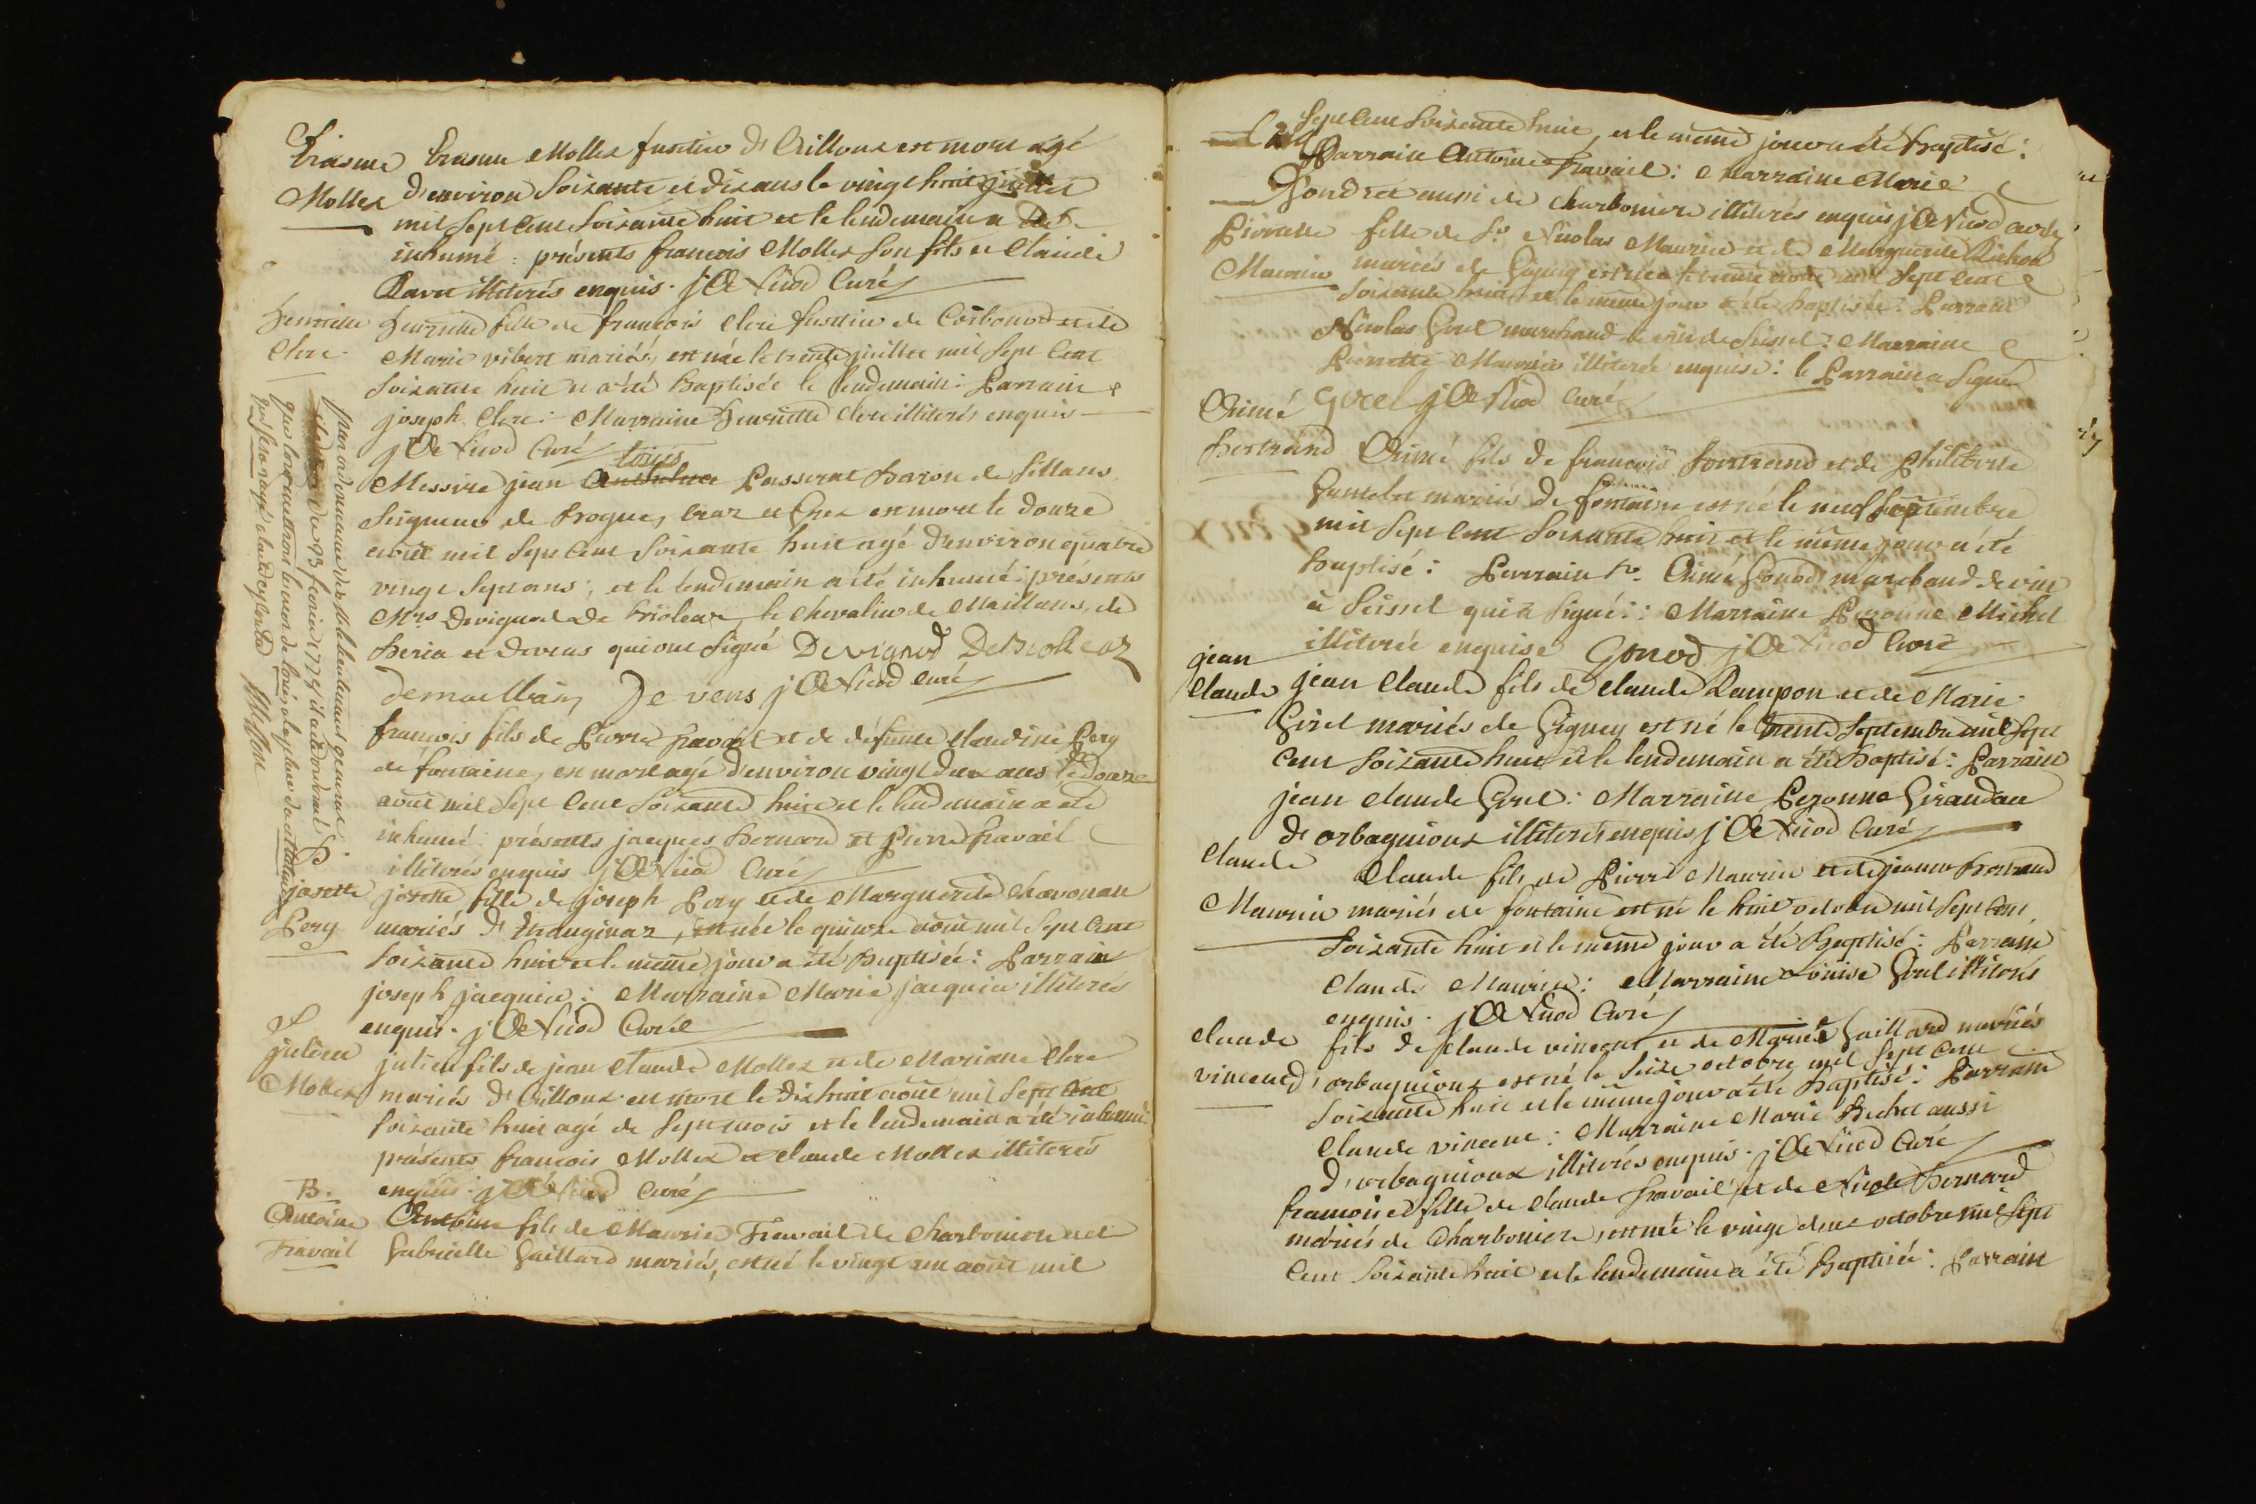 Erasme
Mollex
Erasme Mollex fustier d' Ailloux est mort agé
d'environ Soixante et dix ans le vingt huit juillet
mil Sept Cent Soixante huit et le lendemain a été
inhumé : présents françois Mollex Son fils et Claude
illiterés enquis. j Ae Nicod Curé
henriette
Clerc
henriette fille de françois Clerc fustier de Corbonod et de
Marie vibert mariés, est née le trente juillet mil Sept Cent
Soixante huit et a été Baptisée le lendemain : Parrain
joseph Clerc : Marraine henriette Clerc illiterés enquis
j Ae Nicod Curé
loüis
Messire jean Passerat Baron de Sillans
Seigneur de Brogue, Craz et Chex est mort le douze
août mil Sept Cent Soixante huit agé d'environ quatre
vingt Sept ans, et le lendemain a été inhumé : présents
Mrs Devignod de Biolleaz, le Chevalier de Maillans, de
Seria et Devens qui ont Signé Devignod DeBiolleaz
demaillans De vens j Ae Nicod curé
françois fils de Pierre Travail et de défunte Claudine Pery
de fontaine, est mort agé d'environ vingt deux ans le douze
août mil Sept Cent Soixante huit et le lendemain a été
inhumé : présents jacques Bernard et Pierre Travail
illiterés enquis j Ae Nicod Curé
B.
josette
Pery
josette fille de joseph Pery et de Marguerite Chavonan
mariés d' Etranginaz, est née le quinze août mil Sept Cent
Soixante huit et le même jour a été Baptisée : Parrain
joseph jacquier : Marraine Marie jacquier illiterés
enquis. j Ae Nicod Curé
S
julien
Mollex
julien fils de jean Claude Mollex et de Mariane Clerc
mariés d' Ailloux est mort le dix huit août mil Sept Cent
Soixante huit agé de Sept mois et le lendemain a été inhumé
présents françois Mollex et Claude Mollex illiterés
enquis : j Ae Nicod Curé
B.
Antoine
Travail
Antoine fils de Maurice Travail de Charboniere et de
Gabrielle Gaillard mariés, est né le vingt un août mil
Sept Cent Soixante huit, et le même jour a été Baptisé :
Parrain Antoine Travail : Marraine Marie
Bondret aussi de Charboniere illiterés enquis j Ae Nicod curé
Pierrette
Maurier
fille de Sr Nicolas Maurier et de Marguerite Richon
mariés de Gignez est née août mil Sept Cent
Soixante huit et le même jour a été baptisée : Parrain
Nicolas Girel marchand de vin de Seissel : Marraine
Pierrette Maurier illiterée enquise : le Parrain a Signé
Girel j Ae Nicod curé
Aimé
Bertrand
Aimé fils de françois Bertrand et de Philiberte
mariés de fontaine est né le neuf Septembre
mil Sept Cent Soixante huit et le même jour a été
Baptisé : Parrain Sr. Aimé Gonod marchand de vin
à Seissel qui a Signé : Marraine Peronne Michel
illiterée enquise Gonod j Ae Nicod Curé
jean
Claude
jean Claude fils de Claude Rampon et de Marie
Girel mariés de Gignez est né le trente Septembre mil Sept
Cent Soixante huit et le lendemain a été Baptisé : Parrain
jean Claude Girel : Marraine Peronne Giraudau
d' orbagnioux illiterés enquis j Ae Nicod Curé
Claude
Maurier
Claude fils de Pierre Maurier et de jeanne Bertrand
mariés de fontaine est né le huit octobre mil Sept Cent
Soixante huit et le même jour a été Baptisé : Parrain
Claude Maurier : Marraine Loüise Girel illiterés
enquis. j Ae Nicod Curé
claude
vincent
fils de Claude vincent et de Marie Gaillard mariés
d'orbagnioux est né le Seize octobre mil Sept Cent
Soixante huit et le même jour a été Baptisé : Parrain
Claude vincent : Marraine Marie Bechet aussi
d'orbagnioux illiterés enquis. j Ae Nicod Curé
françoise fille de Claude Travail, et de Nicole Bernard
mariés de Charboniere, est née le vingt deux octobre mil Sept
Cent Soixante huit et le lendemain a été Baptisée : Parrain